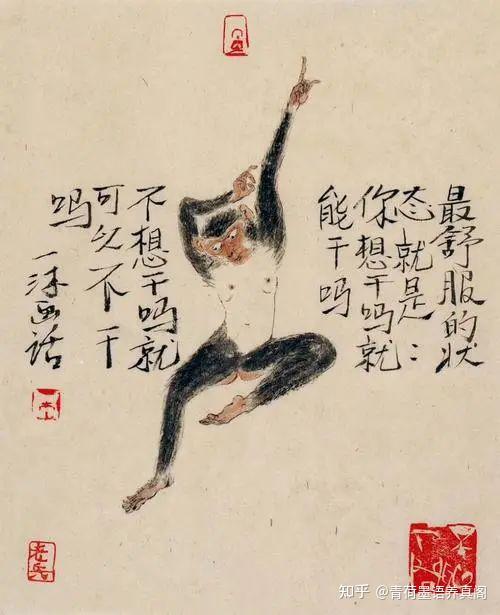 最舒服的状
态就是：
你想干吗就
能干吗
不想干吗就
可以不干
吗
一沐画话
知乎 @青荷墨语养真阁